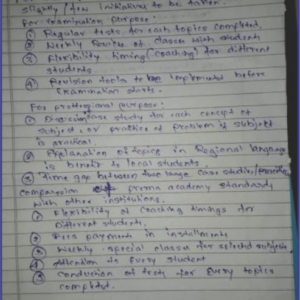 slightly / few initiatives to be taken.
For examination purpose:
① Regular tests for each topics completed.
② Weekly Review of classes with students
③ Flexibility timing (coaching) for different
students
④ Revision tools to be implemented before
Examination starts.
For proffesional purpose:
① case study for each concept of
subject, or practice of problem if subject
is pratical.
② Explanation of topics in Regional language
is benefit to local students.
③ Time gap between two large case studies/
comparision prerna academy standards
with other institutions.
① Flexibility of coaching timings for
different students.
② Fees payments in installments
③ Weekly special classes for selected subjects.
④ to Every student
⑤ Conduction of tests for Every topics
completed.